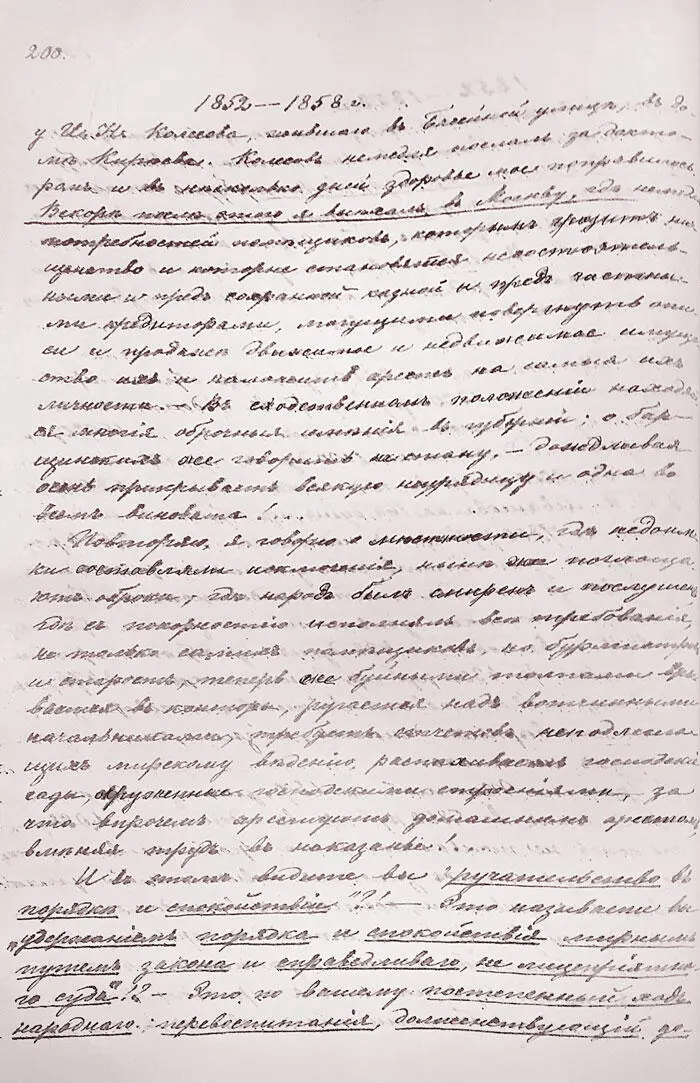 200.
1852—1858 г.
у И. Н. Колесова, жившаго в Бассейной улице, въ до-
мѣ Киреева. Колесовъ немедля послалъ за докто-
ромъ и въ несколько дней здоровье мое поправилось.
Вскорѣ после этого я выехалъ въ Москву, где
потребностей помѣщиковъ, которымъ грозитъ ни-
щенство и которые становятся несостоятель-
ными и предъ сохранной казной и предъ частны-
ми кредиторами, могущими повергнуть описи
си и продажѣ движимое и недвижимое имуще-
ство ихъ и наложить арестъ на самыя ихъ
личности. — Въ сходственномъ положеніи находят-
ся многія оброчныя имѣнія въ губерніи; о бар-
щинскихъ же говорить не стану, —
прикрываетъ всякую неурядицу и одна во
всемъ виновата!...
Повторяю, я говорю о мѣстности, гдѣ недоим-
ки составляли исключенія, ныне же поглоща-
ютъ оброки; где народъ былъ смиренъ и послушенъ
где съ покорностію исполнялъ все требованія,
не только самихъ помѣщиковъ, но бурмистровъ
и старостъ, теперь же буйными толпами вры-
вается въ конторы, ругается надъ вотчинными
начальниками, требуетъ отчетовъ, неподлежа-
щихъ мирскому веденію, господскіе
сады, окруженные господскими строеніями, за
что впрочемъ арестуютъ домашнимъ арестомъ,
вменяя трудъ въ наказанье!
И въ этомъ видите вы "ручательство въ
порядкѣ и спокойствіи"?!— Это называете вы
"удержаніемъ порядка и спокойствія мирнымъ
путемъ закона и справедливаго, не лицепріятна-
го суда"!?— Это по вашему постепенный ходъ
народнаго перевоспитанія, долженствующій до-